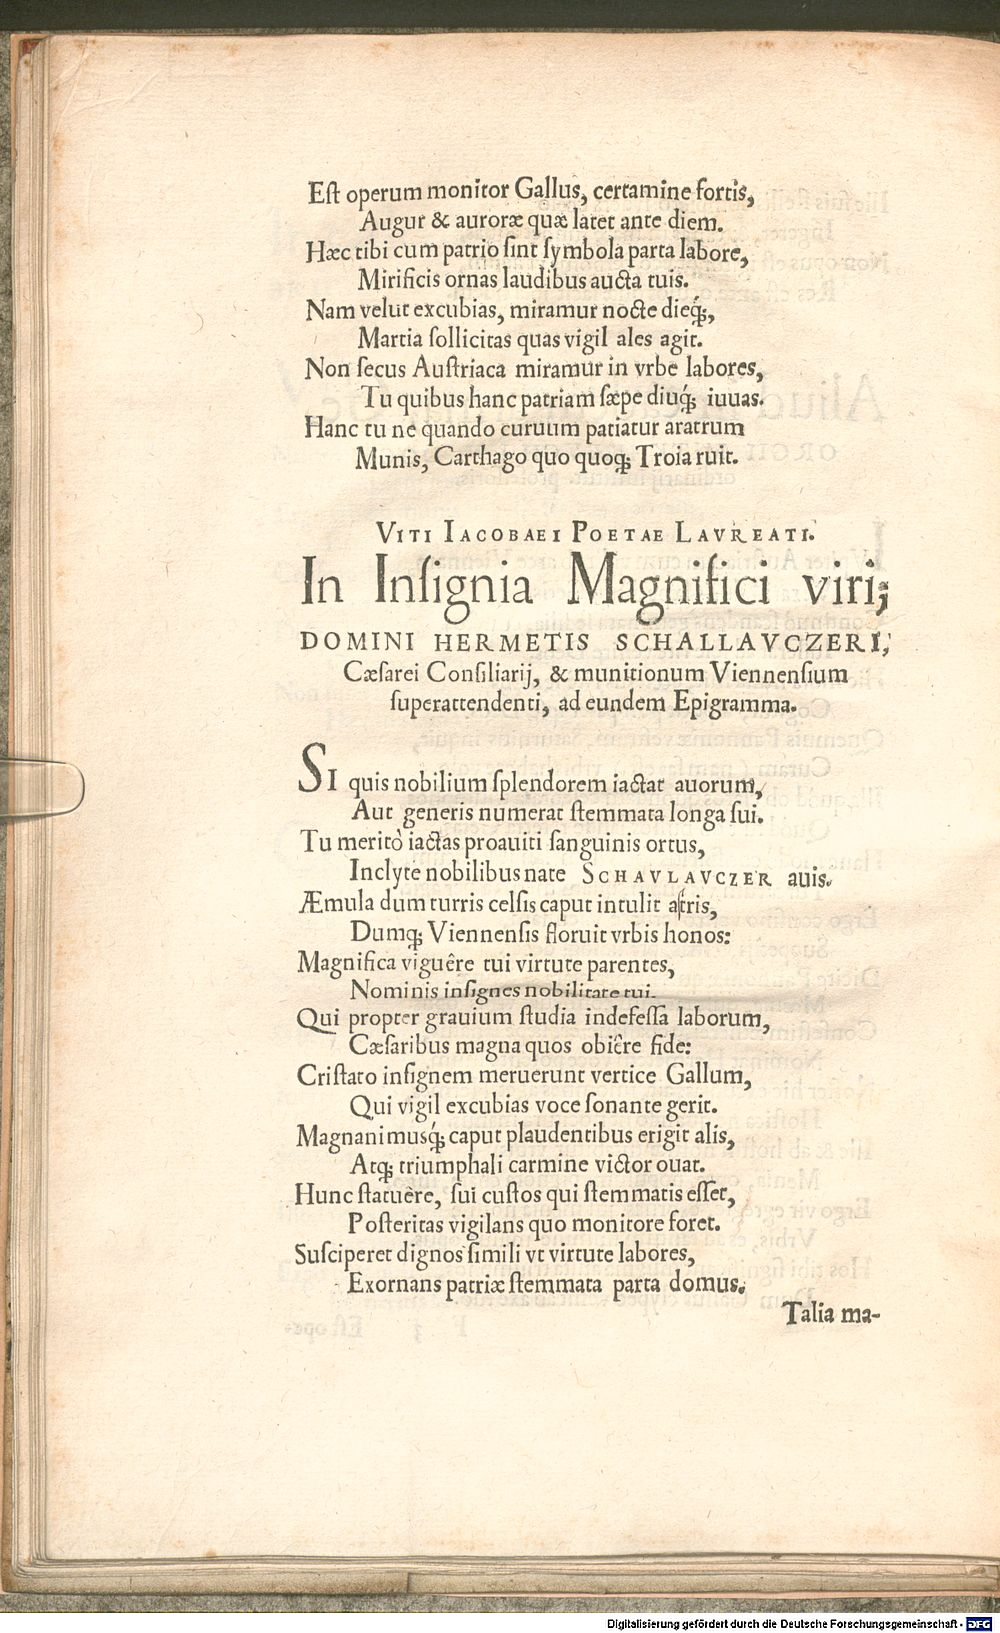 Eſt operum monitor Gallus, certamine fortis,
Augur & auroræ quæ latet ante diem.
Hæc tibi cum patrio ſint ſymbola parta labore,
Mirificis ornas laudibus aucta tuis.
Nam velut excubias, miramur nocte dieq́;,
Martia ſollicitas quas vigil ales agit.
Non ſecus Auſtriaca miramur in vrbe labores,
Tu quibus hanc patriam ſæpe diuq́; iuuas.
Hanc tu ne quando curuum patiatur aratrum
Munis, Carthago quo quoq; Troia ruit.
VITI IACOBAEI POETAE LAVREATI.
In Inſignia Magnifici viri,
DOMINI HERMETIS SCHALLAVCZERI,
Cæſarei Conſiliarij, & munitionum Viennenſium
ſuperattendenti, ad eundem Epigramma.
SI quis nobilium ſplendorem iactat auorum,
Aut generis numerat ſtemmata longa ſui.
Tu meritò iactas proauiti ſanguinis ortus,
Inclyte nobilibus nate SCHAVLAVCZER auis.
Æmula dum turris celſis caput intulit aſtris,
Dumq; Viennenſis floruit vrbis honos:
Magnifica viguêre tui virtute parentes,
Nominis inſignes nobilitate tui.
Qui propter grauium ſtudia indefeſſa laborum,
Cæſaribus magna quos obiêre fide:
Criſtato inſignem meruerunt vertice Gallum,
Qui vigil excubias voce ſonante gerit.
Magnanimusq́; caput plaudentibus erigit alis,
Atq; triumphali carmine victor ouat.
Hunc ſtatuêre, ſui cuſtos qui ſtemmatis eſſet,
Poſteritas vigilans quo monitore foret.
Suſciperet dignos ſimili vt virtute labores,
Exornans patriæ ſtemmata parta domus.
Talia ma-
Digitalisierung gefördert durch die Deutsche Forschungsgemeinschaft - DFG